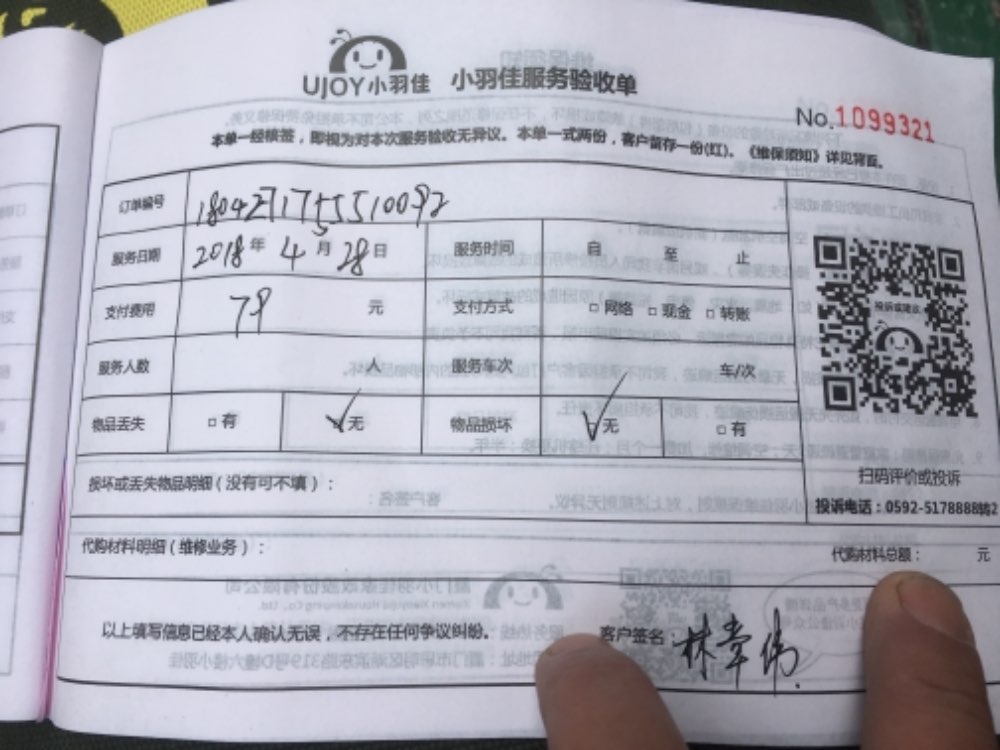 UJOY小羽佳 小羽佳服务验收单
No.1099321
本单一经核签，即视为对本次服务验收无异议。本单一式两份，客户留存一份(红)。《维保须知》详见背面。
订单编号 18042717555510092
服务日期 2018年4月28日 服务时间 自 至 止
支付费用 79 元 支付方式 □网络 □现金 □转账
服务人数 人 服务车次 车/次
物品丢失 □有 √无 物品损坏 √无 □有
投诉或建议
扫码评价或投诉
投诉电话：0592-5178888转2
损坏或丢失物品明细（没有可不填）：
代购材料明细（维修业务）： 代购材料总额： 元
以上填写信息已经本人确认无误，不存在任何争议纠纷。 客户签名：林